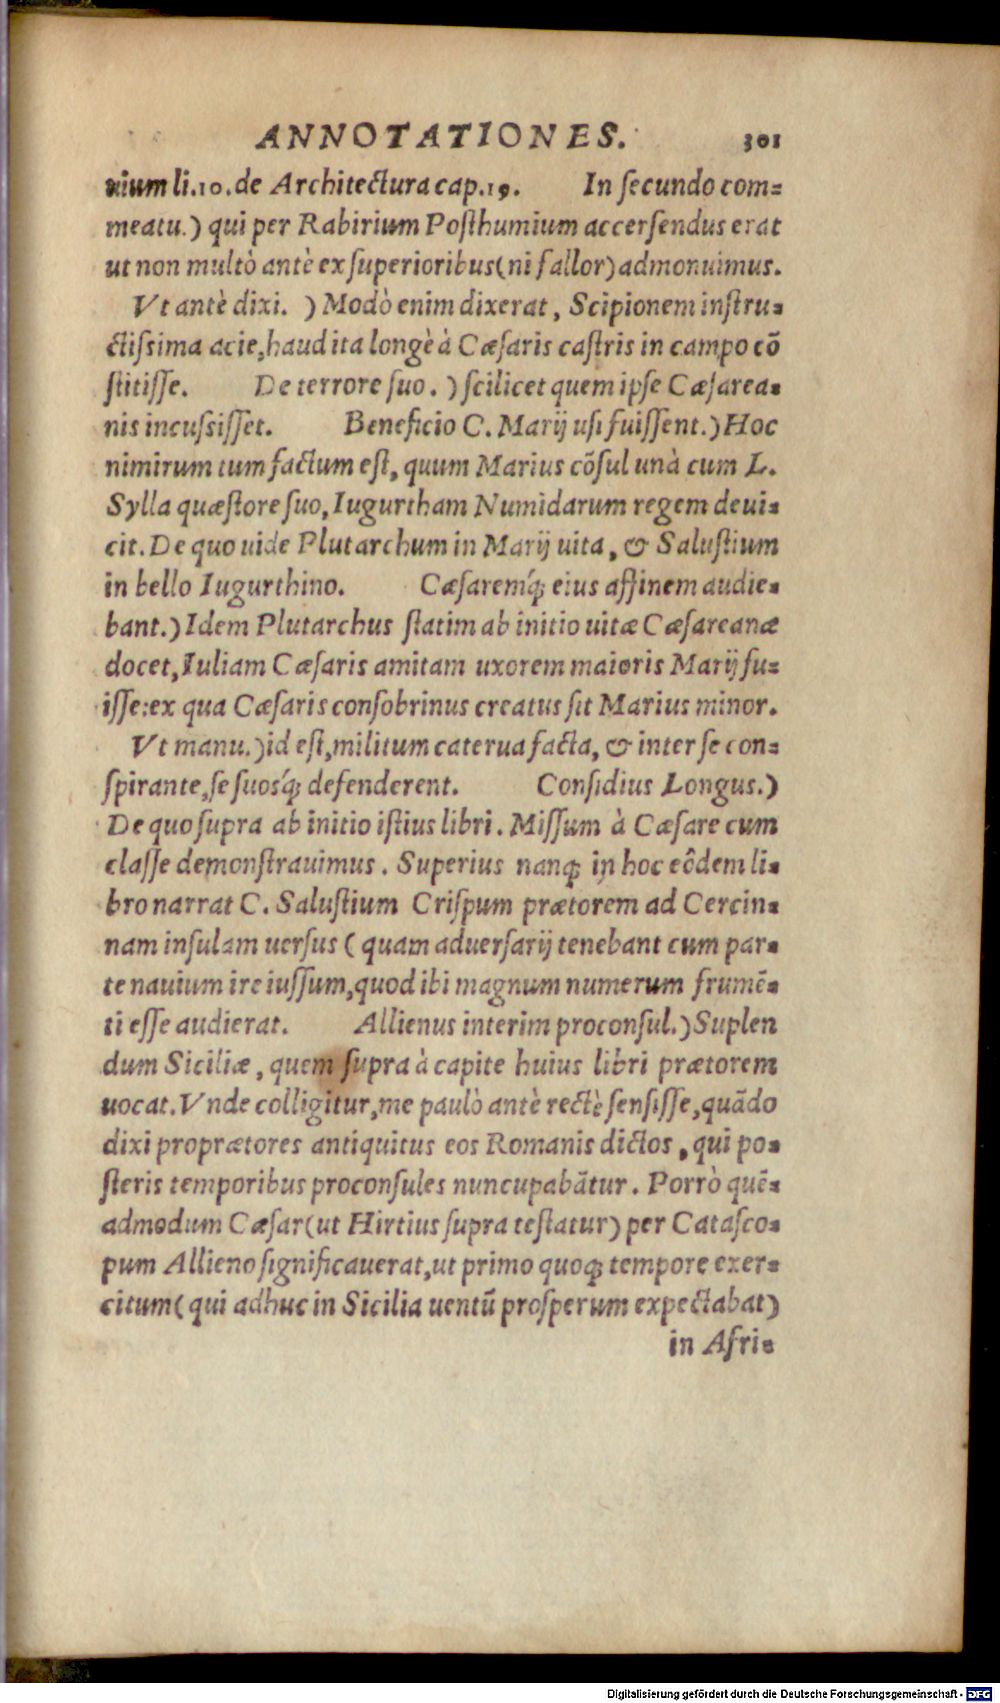 ANNOTATIONES. 301
uium li.10.de Architectura cap.19. In secundo com=
meatu.) qui per Rabirium Posthumium accersendus erat
ut non multò antè ex superioribus(ni fallor)admonuimus.
Vt antè dixi. ) Modò enim dixerat, Scipionem instru=
ctissima acie,haud ita longè à Cæsaris castris in campo cõ
stitisse. De terrore suo. ) scilicet quem ipse Cæsarea=
nis incussisset. Beneficio C. Marij usi fuissent.)Hoc
nimirum tum factum est, quum Marius cõsul unà cum L.
Sylla quæstore suo, Iugurtham Numidarum regem deui=
cit. De quo uide Plutarchum in Marij uita, & Salustium
in bello Iugurthino. Cæsaremq́; eius affinem audie=
bant.)Idem Plutarchus statim ab initio uitæ Cæsareanæ
docet, Iuliam Cæsaris amitam uxorem maioris Marij fu=
isse:ex qua Cæsaris consobrinus creatus sit Marius minor.
Vt manu.)id est,militum caterua facta, & inter se con=
spirante,se suosq́; defenderent. Considius Longus.)
De quo supra ab initio istius libri. Missum à Cæsare cum
classe demonstrauimus. Superius nanq; in hoc eôdem li=
bro narrat C. Salustium Crispum prætorem ad Cercin=
nam insulam uersus ( quam aduersarij tenebant cum par=
te nauium ire iussum,quod ibi magnum numerum frumē=
ti esse audierat. Allienus interim proconsul.)Suplen
dum Siciliæ, quem supra à capite huius libri prætorem
uocat. Vnde colligitur,me paulò antè rectè sensisse,quãdo
dixi proprætores antiquitus eos Romanis dictos, qui po=
steris temporibus proconsules nuncupabãtur. Porrò quē=
admodum Cæsar(ut Hirtius supra testatur) per Catasco=
pum Allieno significauerat,ut primo quoq; tempore exer=
citum( qui adhuc in Sicilia uentũ prosperum expectabat)
in Afri=
Digitalisierung gefördert durch die Deutsche Forschungsgemeinschaft - DFG